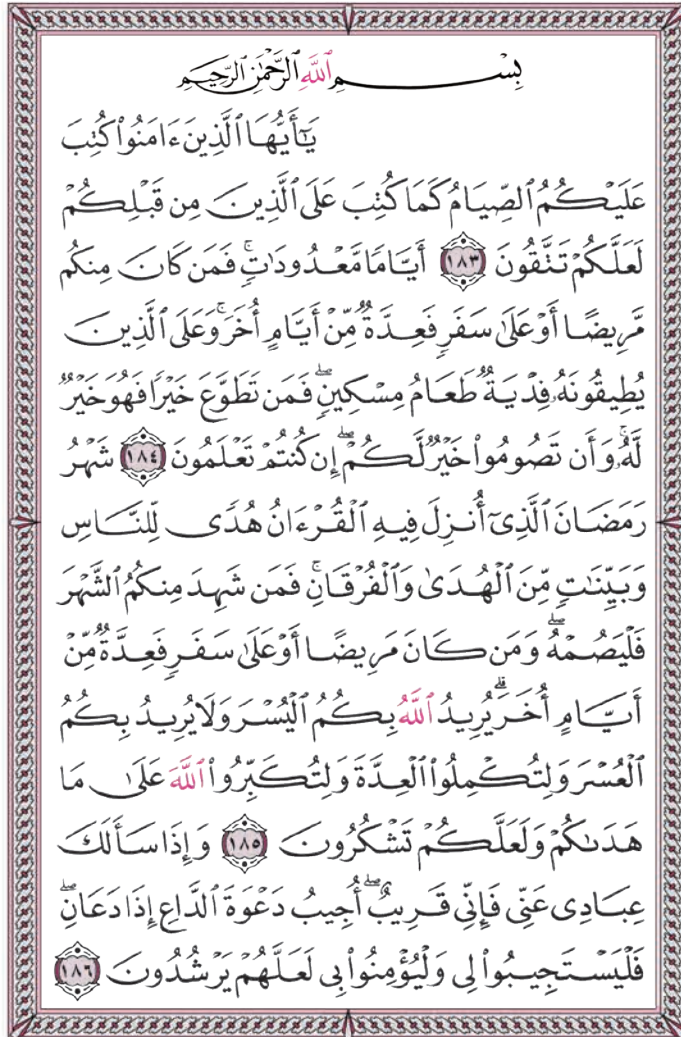 بِسْمِ ٱللَّهِ ٱلرَّحْمَٰنِ ٱلرَّحِيمِ
يَٰٓأَيُّهَا ٱلَّذِينَ ءَامَنُوا۟ كُتِبَ
عَلَيْكُمُ ٱلصِّيَامُ كَمَا كُتِبَ عَلَى ٱلَّذِينَ مِن قَبْلِكُمْ
لَعَلَّكُمْ تَتَّقُونَ ١٨٣ أَيَّامًا مَّعْدُودَٰتٍۚ فَمَن كَانَ مِنكُم
مَّرِيضًا أَوْ عَلَىٰ سَفَرٍ فَعِدَّةٌ مِّنْ أَيَّامٍ أُخَرَۚ وَعَلَى ٱلَّذِينَ
يُطِيقُونَهُۥ فِدْيَةٌ طَعَامُ مِسْكِينٍۖ فَمَن تَطَوَّعَ خَيْرًا فَهُوَ خَيْرٌ
لَّهُۥۚ وَأَن تَصُومُوا۟ خَيْرٌ لَّكُمْۖ إِن كُنتُمْ تَعْلَمُونَ ١٨٤ شَهْرُ
رَمَضَانَ ٱلَّذِىٓ أُنزِلَ فِيهِ ٱلْقُرْءَانُ هُدًى لِّلنَّاسِ
وَبَيِّنَٰتٍ مِّنَ ٱلْهُدَىٰ وَٱلْفُرْقَانِۚ فَمَن شَهِدَ مِنكُمُ ٱلشَّهْرَ
فَلْيَصُمْهُۖ وَمَن كَانَ مَرِيضًا أَوْ عَلَىٰ سَفَرٍ فَعِدَّةٌ مِّنْ
أَيَّامٍ أُخَرَۗ يُرِيدُ ٱللَّهُ بِكُمُ ٱلْيُسْرَ وَلَا يُرِيدُ بِكُمُ
ٱلْعُسْرَ وَلِتُكْمِلُوا۟ ٱلْعِدَّةَ وَلِتُكَبِّرُوا۟ ٱللَّهَ عَلَىٰ مَا
هَدَىٰكُمْ وَلَعَلَّكُمْ تَشْكُرُونَ ١٨٥ وَإِذَا سَأَلَكَ
عِبَادِى عَنِّى فَإِنِّى قَرِيبٌۖ أُجِيبُ دَعْوَةَ ٱلدَّاعِ إِذَا دَعَانِۖ
فَلْيَسْتَجِيبُوا۟ لِى وَلْيُؤْمِنُوا۟ بِى لَعَلَّهُمْ يَرْشُدُونَ ١٨٦